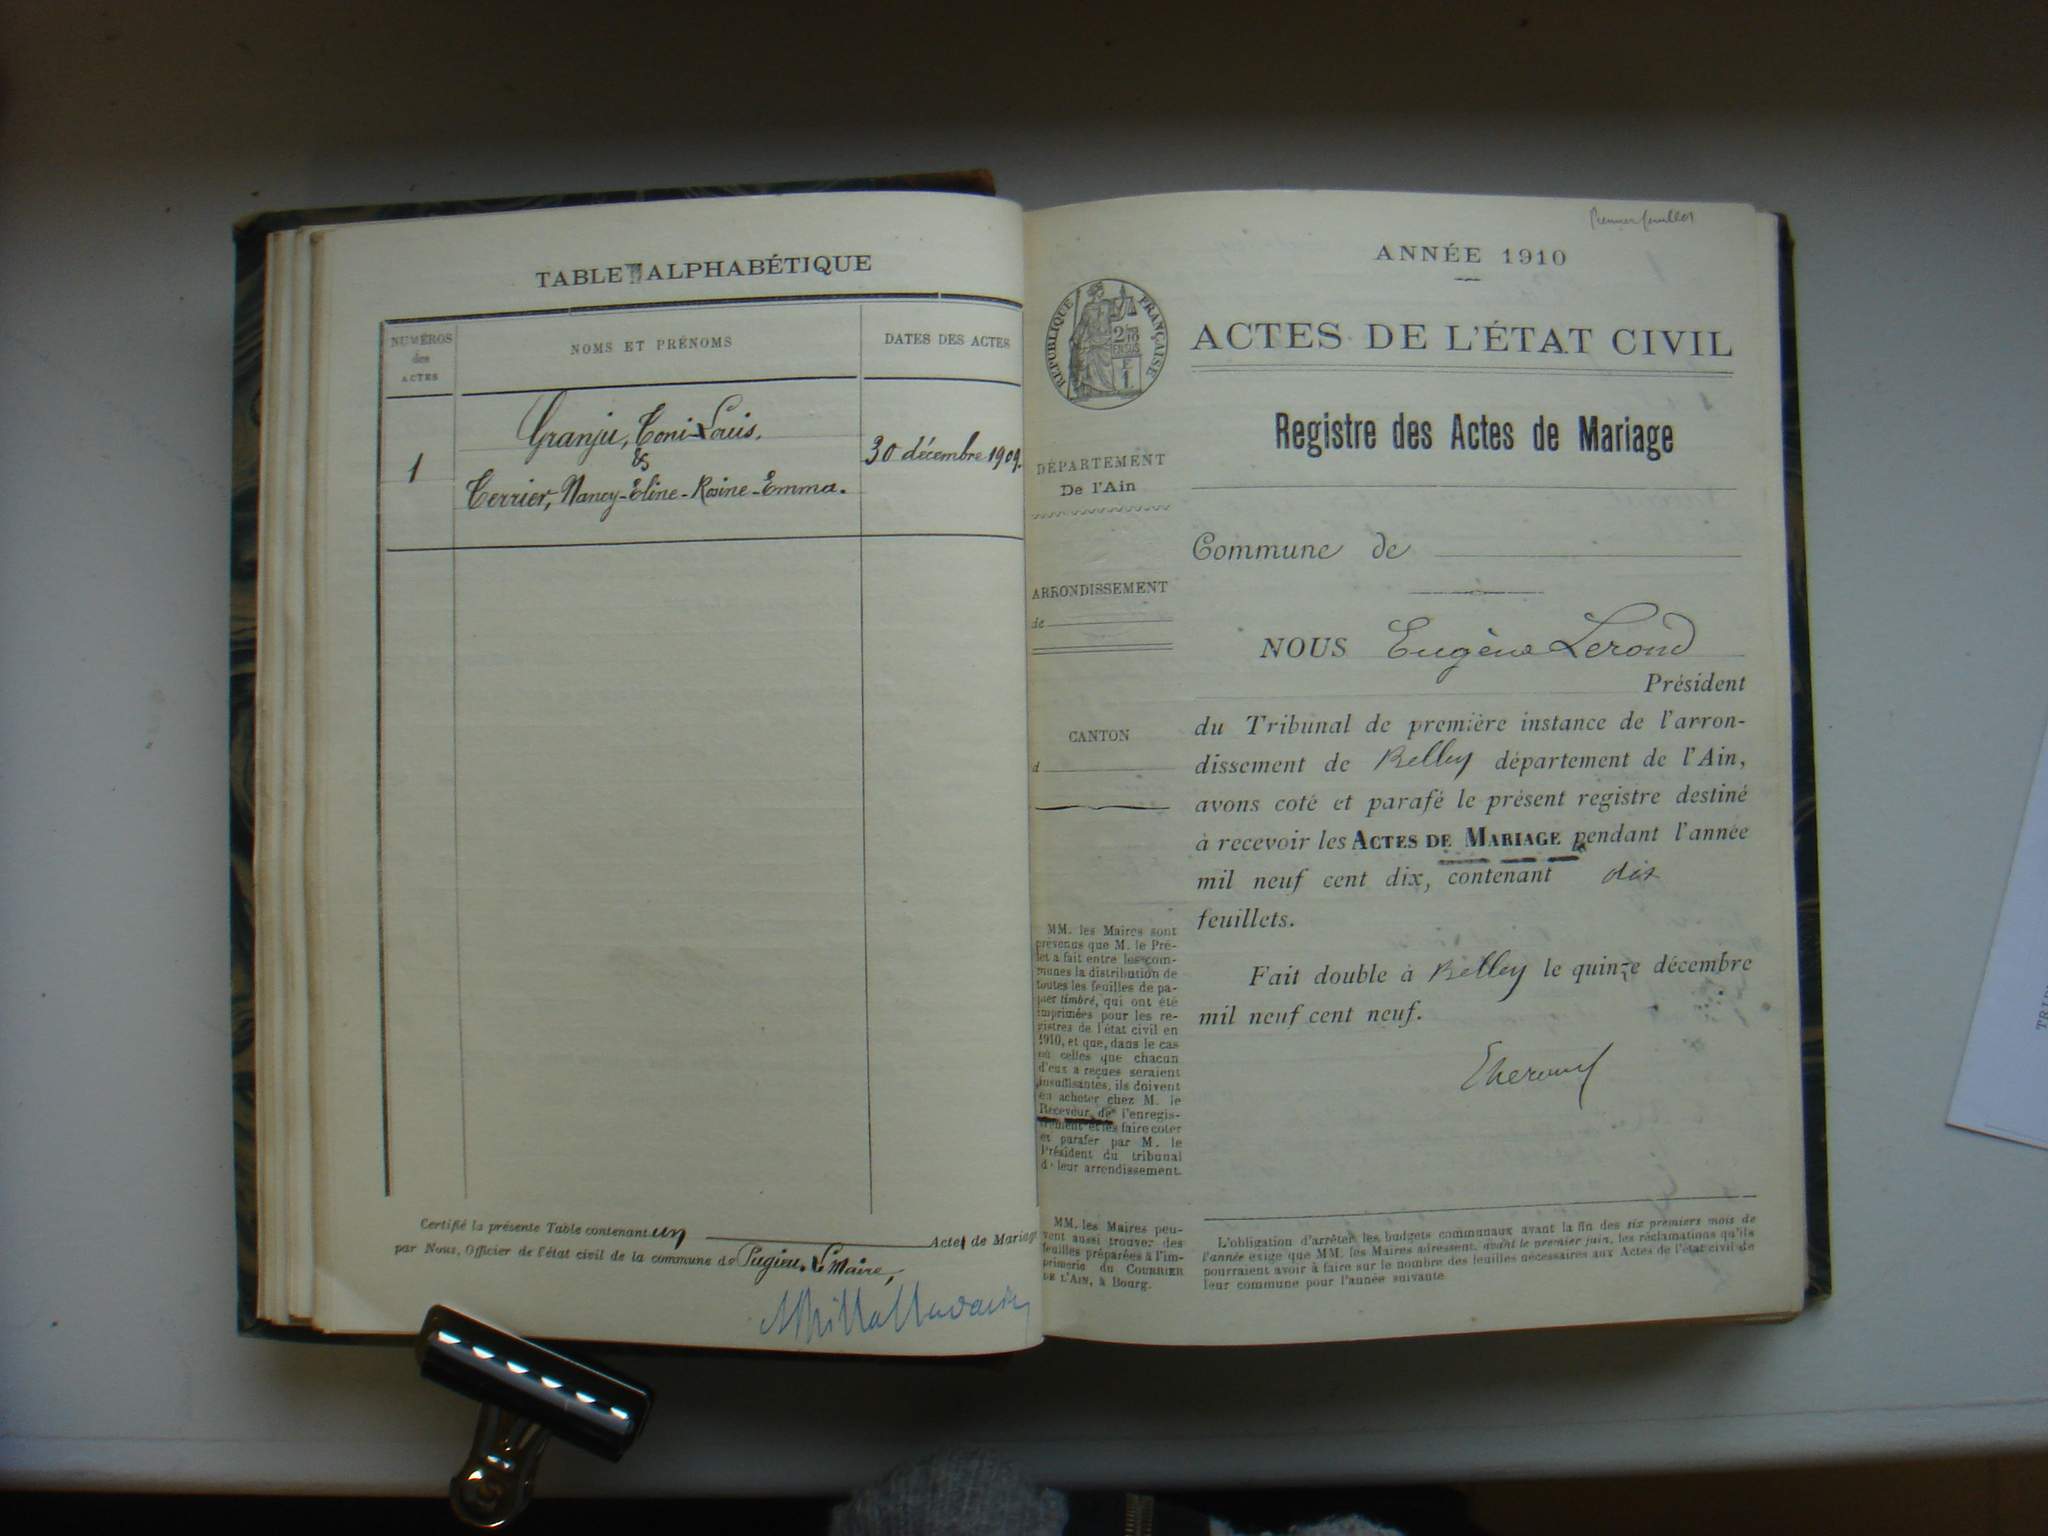 TABLE ALPHABÉTIQUE
NUMÉROS
des
ACTES
NOMS ET PRÉNOMS
DATES DES ACTES
1
Granju, Toni-Louis.
&
Terrier, Nancy-Eline-Rosine-Emma.
30 décembre 1909.
Certifié la présente Table contenant un Acte de Mariage
par Nous, Officier de l'état civil de la commune de Pugieu. Le Maire,
Premier feuillet
ANNÉE 1910
RÉPUBLIQUE FRANÇAISE
ACTES DE L'ÉTAT CIVIL
Registre des Actes de Mariage
DÉPARTEMENT
De l'Ain
Commune de
ARRONDISSEMENT
de
CANTON
d
NOUS Eugène Lerond
Président
du Tribunal de première instance de l'arron-
dissement de Belley département de l'Ain,
avons coté et parafé le présent registre destiné
à recevoir les ACTES DE MARIAGE pendant l'année
mil neuf cent dix, contenant dix
feuillets.
Fait double à Belley le quinze décembre
mil neuf cent neuf.
MM. les Maires sont
prévenus que M. le Pré-
fet a fait entre les com-
munes la distribution de
toutes les feuilles de pa-
pier timbré, qui ont été
imprimées pour les re-
gistres de l'état civil en
1910, et que, dans le cas
où celles que chacun
d'eux a reçues seraient
insuffisantes, ils doivent
en acheter chez M. le
Receveur de l'enregis-
trement et les faire coter
et parafer par M. le
Président du tribunal
de leur arrondissement.
MM. les Maires peu-
vent aussi trouver des
feuilles préparées à l'im-
primerie du COURRIER
DE L'AIN, à Bourg.
L'obligation d'arrêter les budgets communaux avant la fin des six premiers mois de
l'année exige que MM. les Maires adressent, avant le premier juin, les réclamations qu'ils
pourraient avoir à faire sur le nombre des feuilles nécessaires aux Actes de l'état civil de
leur commune pour l'année suivante